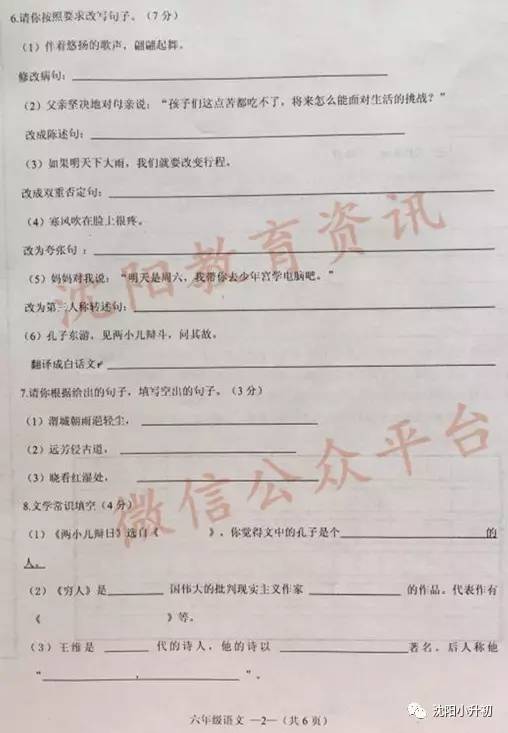 6.请你按照要求改写句子。(7 分)
(1)伴着悠扬的歌声,翩翩起舞。
修改病句:
(2)父亲坚决地对母亲说:“孩子们这点苦都吃不了,将来怎么能面对生活的挑战?”
改成陈述句:
(3)如果明天下大雨,我们就要改变行程。
改成双重否定句:
(4)寒风吹在脸上很疼。
改为夸张句 :
(5)妈妈对我说:“明天是周六,我带你去少年宫学电脑吧。”
改为第三人称转述句:
(6)孔子东游,见两小儿辩斗,问其故。
翻译成白话文
7.请你根据给出的句子,填写空出的句子。(3 分)
(1)渭城朝雨浥轻尘,
(2)远芳侵古道,
(3)晓看红湿处,
8.文学常识填空(4 分)
(1)《两小儿辩日》选自《 》,你觉得文中的孔子是个 的
人。
(2)《穷人》是 国伟大的批判现实主义作家 的作品。代表作有
《 》等。
(3)王维是 代的诗人,他的诗以 著名。后人称他
“ , ”。
六年级语文 —2—(共 6 页)
沈阳教育资讯
微信公众平台
沈阳小升初